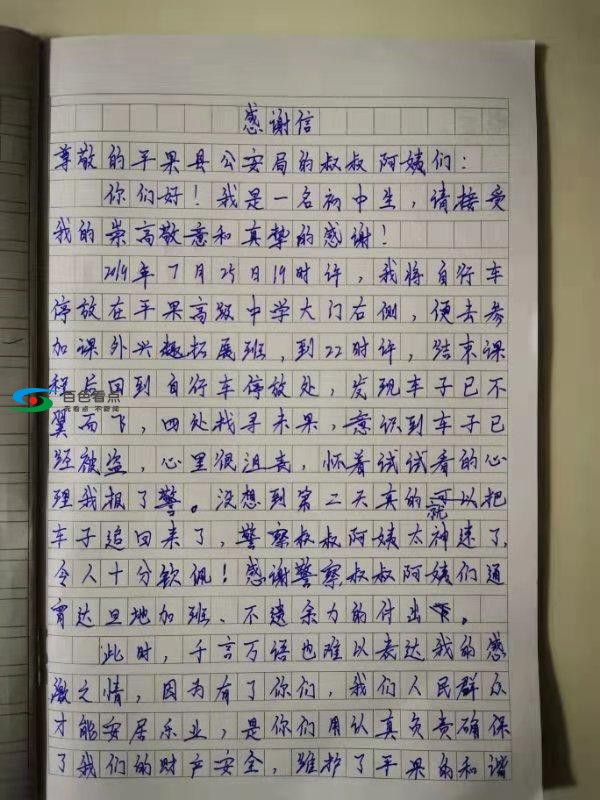 感谢信
尊敬的平果县公安局的叔叔阿姨们：
你们好！我是一名初中生，请接受
我的崇高敬意和真挚的感谢！
2019年7月25日19时许，我将自行车
停放在平果高级中学大门右侧，便去参
加课外兴趣拓展班，到22时许，结束课
程后回到自行车停放处，发现车子已不
百色看点
翼而飞，四处找寻未果，意识到车子已
经被盗，心里很沮丧，怀着试试看的心
理我报了警。没想到第二天真的就把
车子追回来了，警察叔叔阿姨太神速了，
令人十分钦佩！感谢警察叔叔阿姨们通
宵达旦地加班、不遗余力的付出。
此时，千言万语也难以表达我的感
激之情，因为有了你们，我们人民群众
才能安居乐业，是你们用认真负责确保
了我们的财产安全，维护了平果的和谐